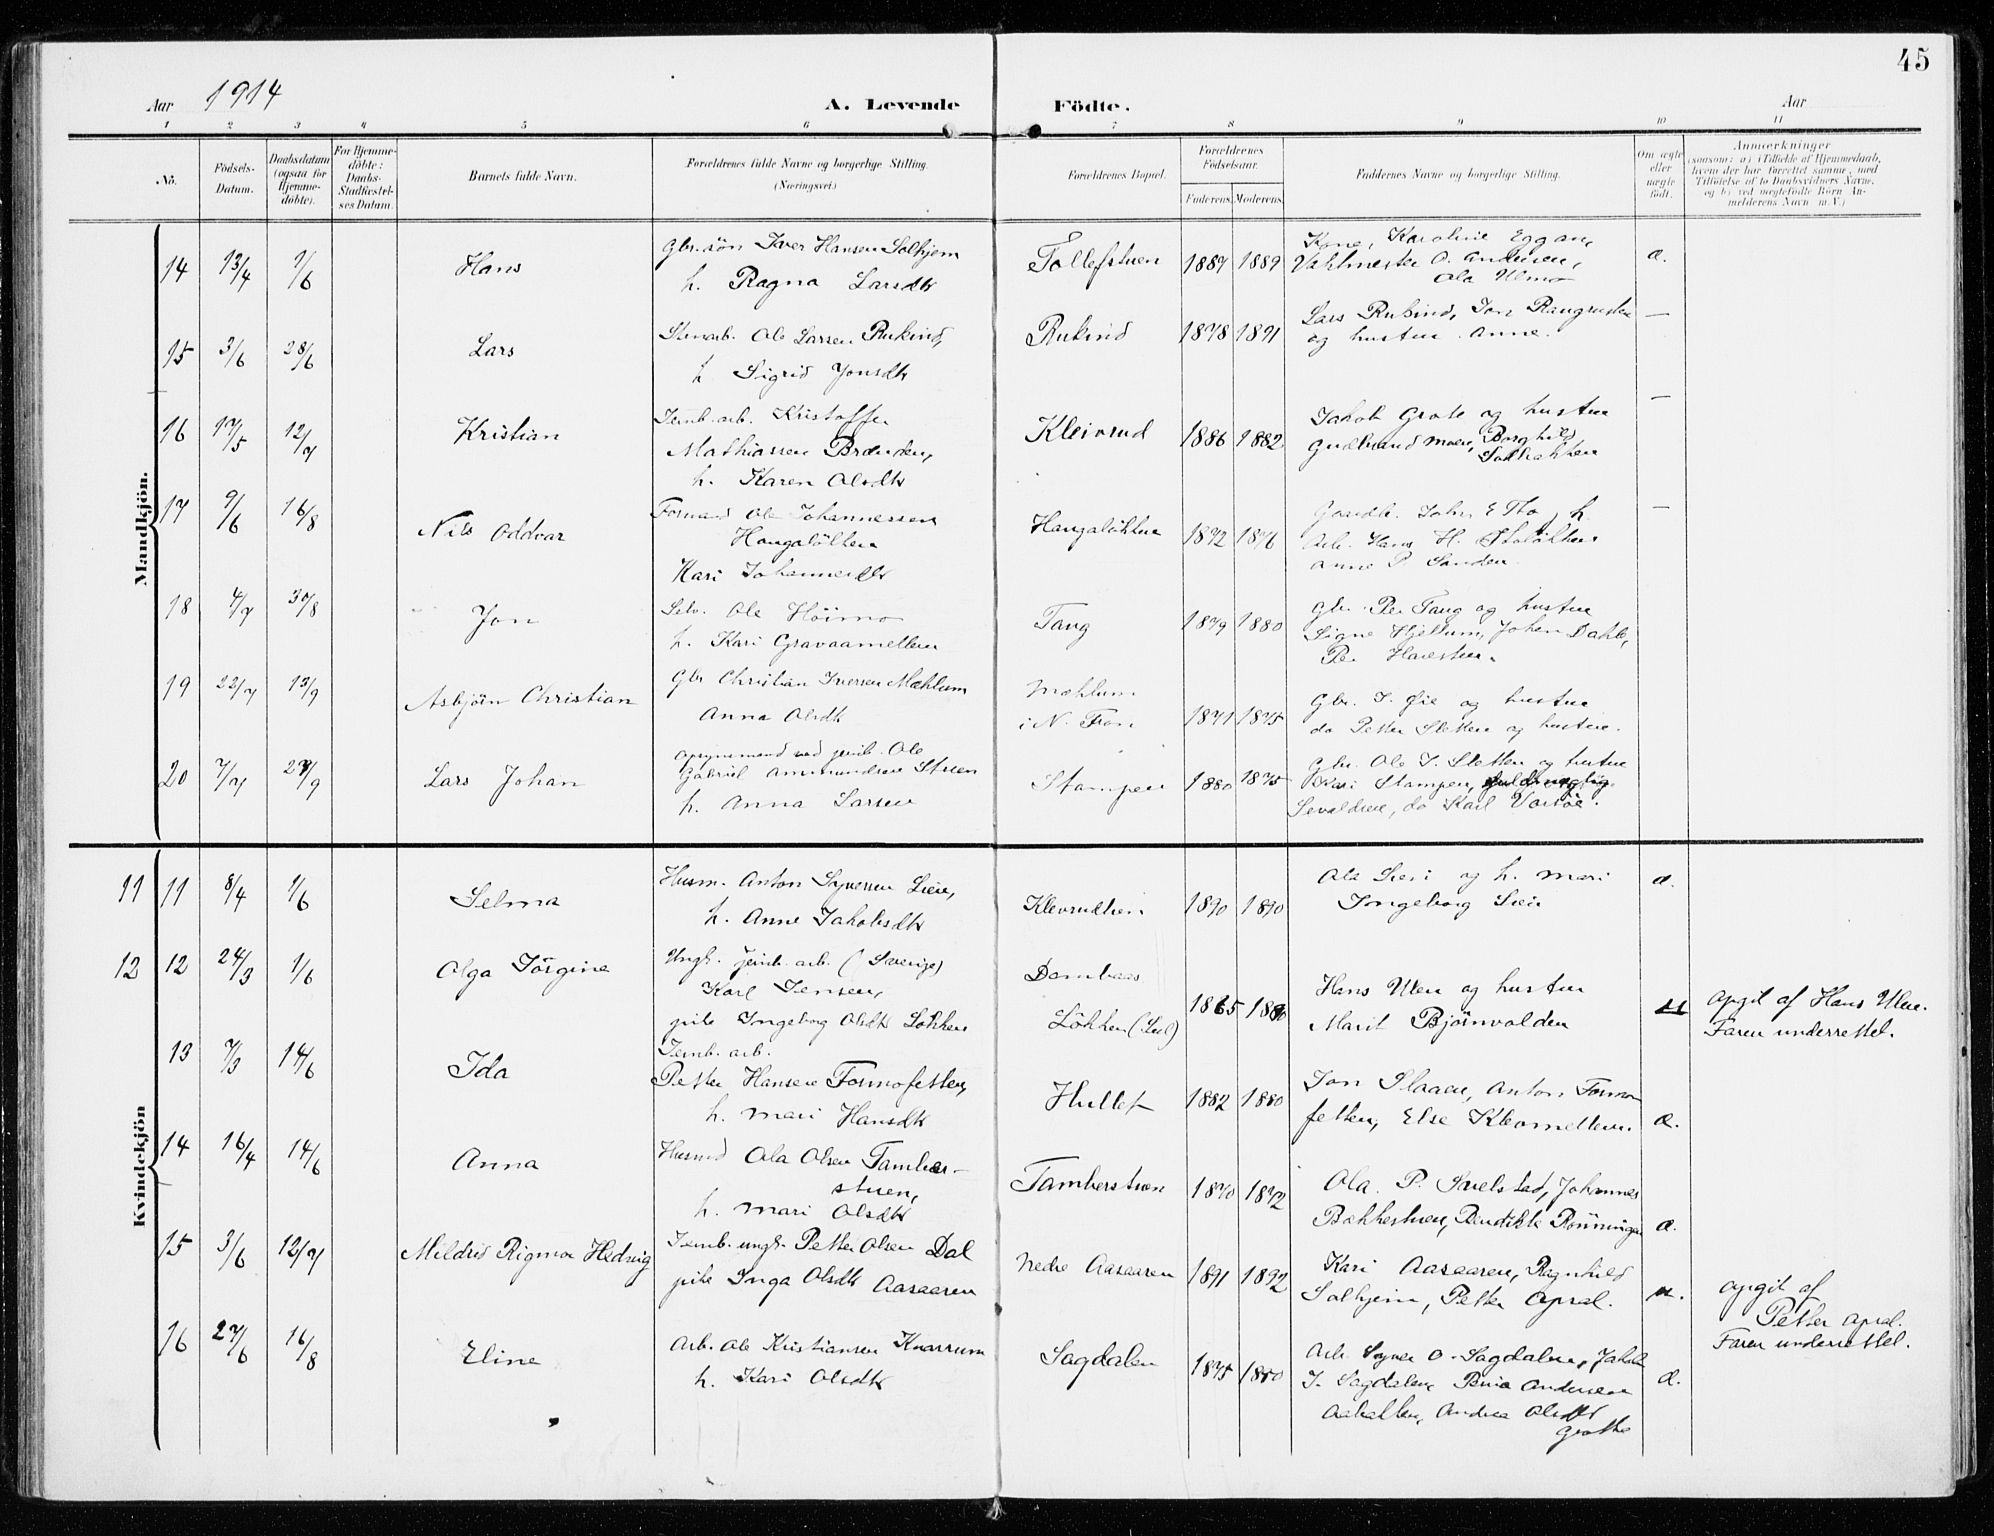 45
Aar 1914 A. Levende Födte. Aar
1 2 3 4 5 6 7 8 9 10 11
No.
Födsels-Datum.
Daabsdatum (ogsaa for Hjemme-döbte).
For Hjemme-döbte: Daabs-Stadfæstel-ses Datum.
Barnets fulde Navn.
Forældrenes fulde Navne og borgerlige Stilling. (Næringsvei.)
Forældrenes Bopæl.
Forældrenes Födselsaar.
Faderens. Moderens.
Faddernes Navne og borgerlige Stilling.
Om ægte eller uægte födt.
Anmærkninger
(saasom: a) i Tilfælde af Hjemmedaab,
hvem der har forrettet samme, med
Tilföielse af to Daabsvidners Navne,
og b) ved uægtefödte Börn An-
melderens Navn m.V.)
Mandkjön.
14 13/4 1/6 Hans
Gbr.sön Iver Hansen Solhjem
h. Ragna Larsdtr
Tollefstuen 1889 1889
Kone, Karoline Eggen,
Vaktmester O. Andersen,
Ola Ulmo
æ.
15 3/6 28/6 Lars
Stenarb. Ole Larsen Rukind,
h. Sigrid Jonsdtr
Rukind 1878 1891
Lars Rukind, Jon
og hustru Anne.
—
16 17/5 12/7 Kristian
Jernb.arb. Kristoffer
Mathiassen Brænden,
h. Karen Olsdtr
Kleivrud 1886 1882
Jakob Grote og hustru
Gudbrand Moen, Borghild
Solbakken
—
17 9/6 16/8 Nils Oddvar
Formand Ole Johannessen
Haugalökken
Kari Johannesdtr
Haugalökken 1872 1876
Gaardbr. John E Tho, h.
Arb. Hans H.
Anne P. Sanden
—
18 4/7 30/8 Jon
Selv. Ole Höimo
h. Kari Gravaamellem
Tang 1879 1880
Gbr. Per Tang og hustru
Signe Hjellum, Johan Dahle,
Per
19 22/7 13/9 Asbjörn Christian
Gbr Christian Iversen Mæhlum
Anna Olsdtr
Mæhlum
i N. Fron 1871 1875
Gbr. I. Öie og hustru
do Petter Sletten og hustru.
20 7/7 27/9 Lars Johan
Opsynsmand ved jernb. Ole
Gabriel Ammundsen Struen
h. Anna Larsen
Stampen 1880 1875
Gbr. Ole I. Sletten og hustru
Kari Stampen,
Sevaldsen, do Karl
Kvindekjön
11 11 8/4 1/6 Selma
Husm. Anton Syversen Lien,
h. Anne Jakobsdtr
Klevrudlien 1890 1890
Ole Lien og h. Mari
Ingeborg Lien
æ.
12 12 24/3 1/6 Olga Jörgine
Ungk. jernb. arb. (Sverige)
Karl Jensen,
pike Ingeborg Olsdtr Lökken
Dombaas
Lökken (Lesl) 1865 1880
Hans Ulen og hustru
Marit Björnvolden
u
Opgit af Hans Ulen.
Faren underrettet.
13 7/3 14/6 Ida
Jernb. arb.
Petter Hansen Formofetten,
h. Mari Hansdtr
Hullet 1882 1880
Jon Slaaen, Anton Formo-
fetten, Else Klevmellem.
æ.
14 16/4 14/6 Anna
Husmd Ola Olsen Tamber-
stuen,
h. Mari Olsdtr
Tamberstuen 1870 1872
Ola P. Svelstad, Johannes
Bækkestuen, Bendikte Rönningen
æ.
15 3/6 12/7 Mildrid Rigmor Hedvig
Jernb. ungk. Petter Olsen Dal
pike Inga Olsdtr Aasaaren
Nedre Aasaaren 1891 1892
Kari Aasaaren, Ragnhild
Solhjem, Petter Opsal.
u.
Opgit af
Petter Opsal.
Faren underrettet.
16 27/6 16/8 Eline
Arb. Ole Kristiansen Kvarrum
h. Kari Olsdtr
Sagdalen 1875 1880
Arb. Syver O. Sagdalen, Jakob
I. Sagdalen, Andersen
Aabakken, Andrea Olsdtr
Grotte
æ.